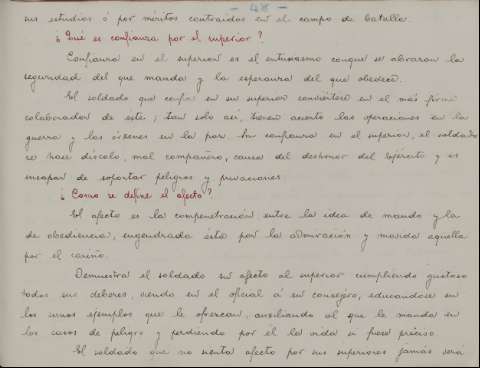 - 48 -
sus estudios ó por méritos contraidos en el campo de batalla.
¿Qué es confianza por el superior?
Confianza en el superior es el entusiasmo conque se abrazan la
seguridad del que manda y la esperanza del que obedece.
El soldado que confia en su superior conviértese en el más firme
colaborador de éste; tan solo asi, tienen acierto las operaciones en la
guerra y las órdenes en la paz. Sin confianza en el superior, el soldado
se hace díscolo, mal compañero, causa del deshonor del Ejército y es
incapaz de soportar peligros y privaciones.
¿Como se define el afecto?
El afecto es la compenetración entre la idea de mando y la
de obediencia, engendrada ésta por la admiración y movida aquella
por el cariño.
Demuestra el soldado su afecto al superior cumpliendo gustoso
todos sus deberes, viendo en el oficial á su consejero, educandose en
los unos ejemplos que le ofrezcan, auxiliando al que le manda en
los casos de peligro y perdiendo por él la vida si fuese preciso.
El soldado que no sienta afecto por sus superiores jamás será